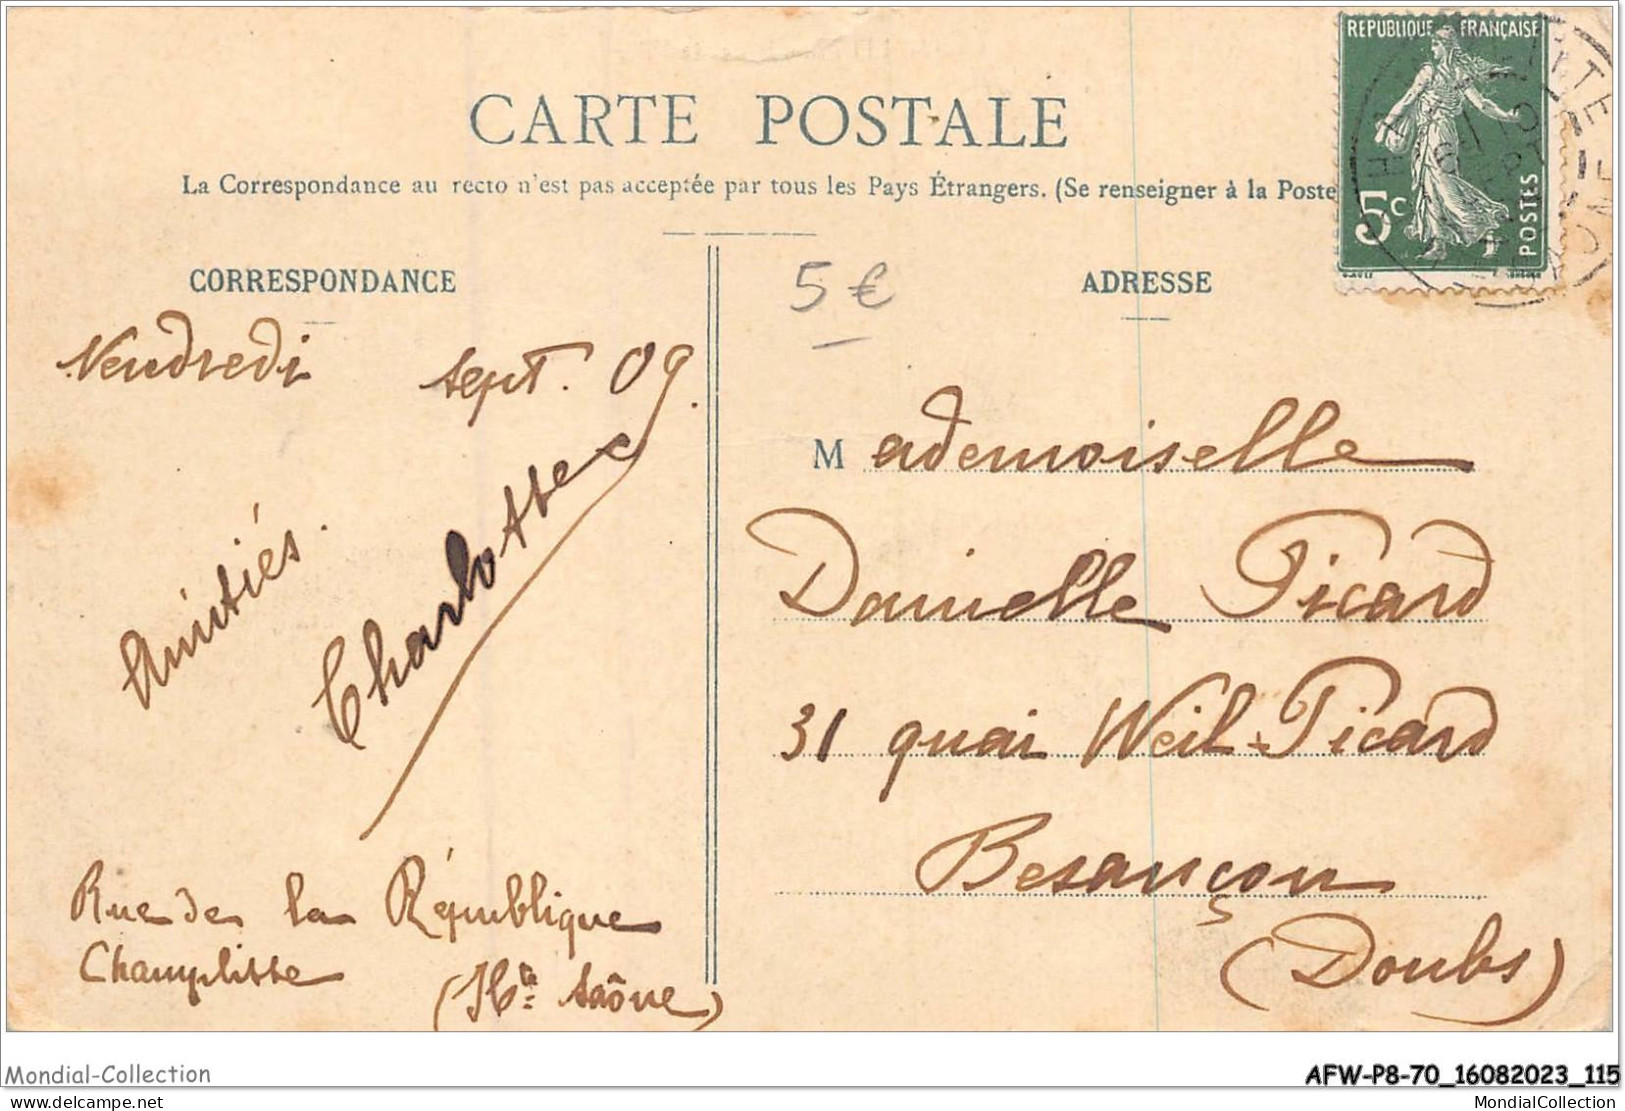 CARTE POSTALE
La Correspondance au recto n'est pas acceptée par tous les Pays Étrangers. (Se renseigner à la Poste
REPUBLIQUE FRANÇAISE
5c
POSTES
CORRESPONDANCE
ADRESSE
5 €
Vendredi sept. 09.
Amitiés.
Charlotte
Rue de la République
Champlitte
(Hte Saône)
Mademoiselle
Danielle Picard
31 quai Weil-Picard
Besançon
(Doubs)
Mondial-Collection
AFW-P8-70_16082023_115
www.delcampe.net
MondialCollection